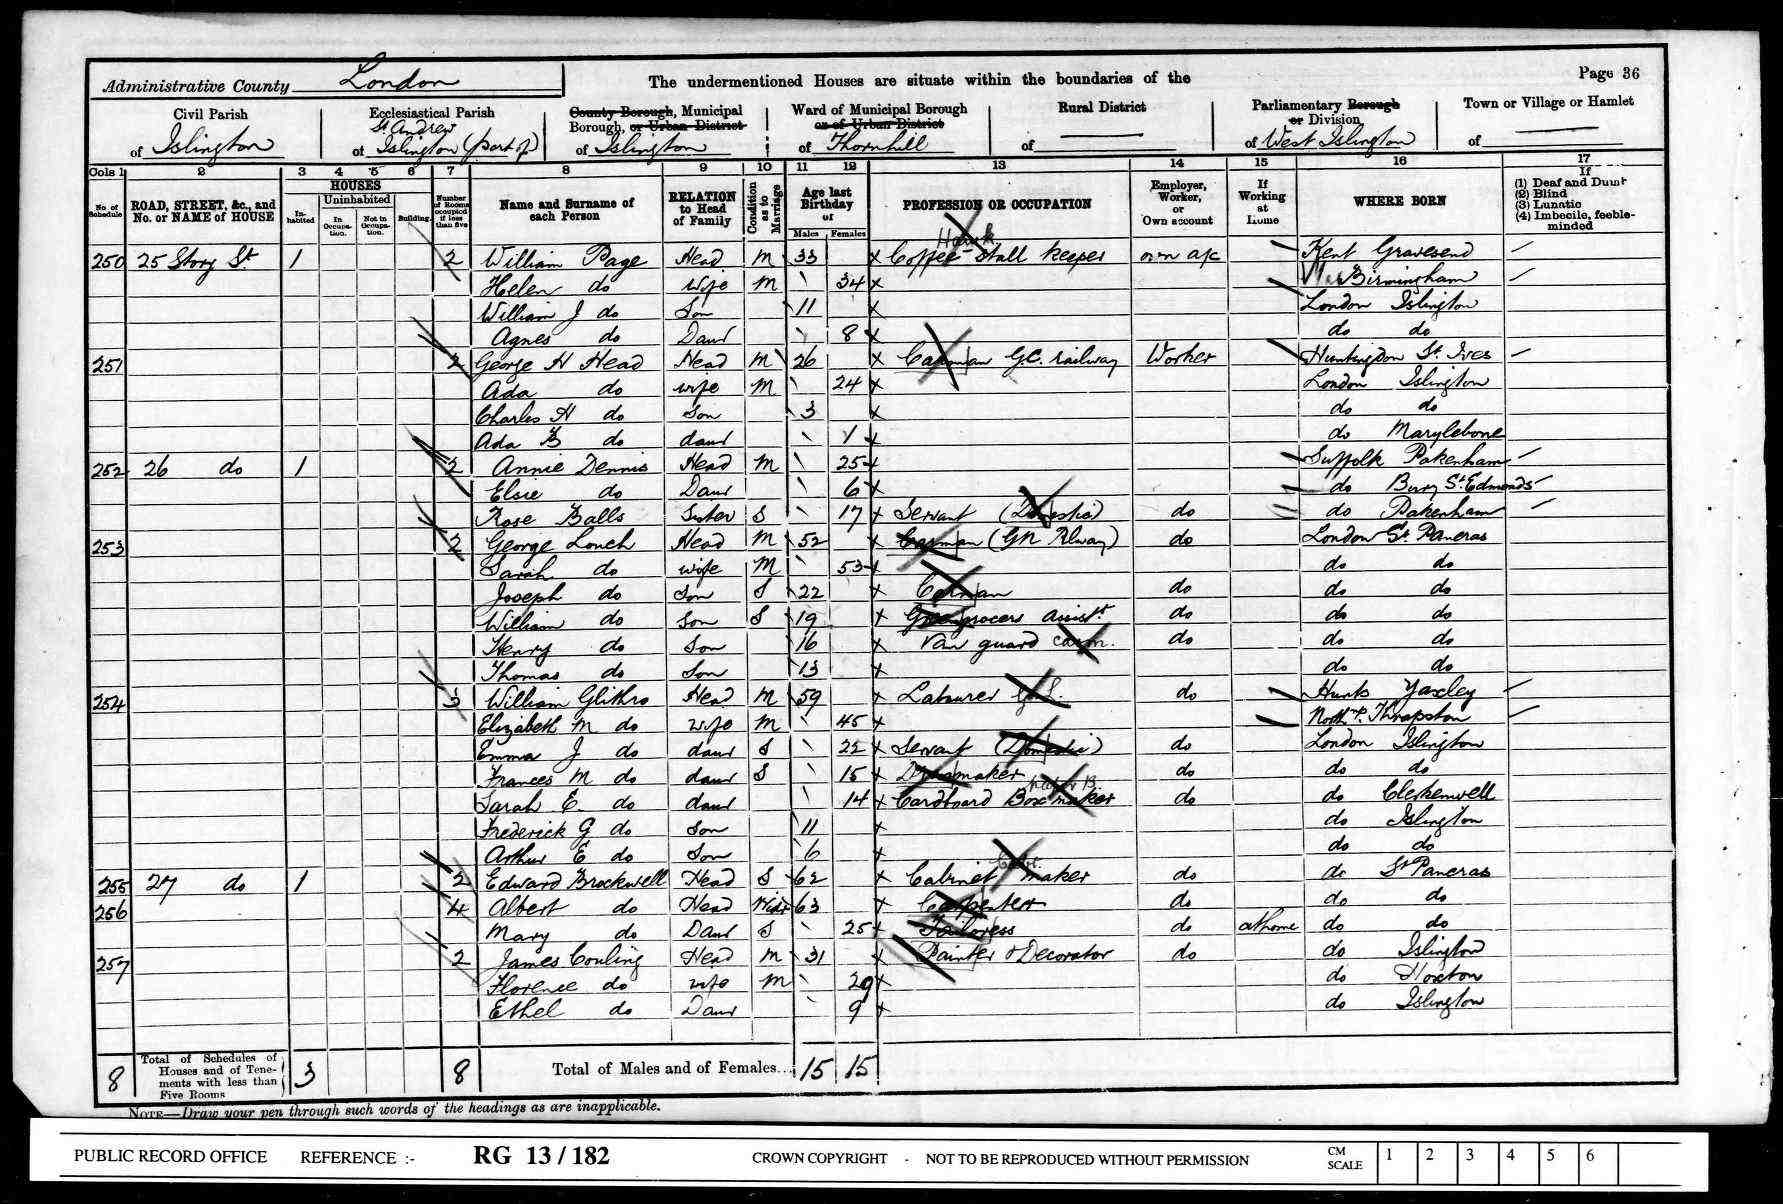 Administrative County London The undermentioned Houses are situate within the boundaries of the Page 36
Civil Parish Ecclesiastical Parish County Borough, Municipal Ward of Municipal Borough Rural District Parliamentary Borough Town or Village or Hamlet
St Andrew Borough, or Urban District or of Urban District or Division,
of Islington of Islington (part of) of Islington of Thornhill of of West Islington of
Cols 1 2 3 4 5 6 7 8 9 10 11 12 13 14 15 16 17
No. of Schedule ROAD, STREET, &c., and No. or NAME of HOUSE HOUSES Inhabited Uninhabited In Occupation. Not in Occupation. Building. Number of Rooms occupied if less than five Name and Surname of each Person RELATION to Head of Family Condition as to Marriage Age last Birthday of Males Females PROFESSION OR OCCUPATION Employer, Worker, or Own account If Working at Home WHERE BORN If (1) Deaf and Dumb (2) Blind (3) Lunatic (4) Imbecile, feeble-minded
Hawk
250 25 Story St. 1 2 William Page Head M 33 x Coffee Stall Keeper own a/c Kent Gravesend
Helen do wife M 34 x Birmingham
William J do Son 11 x London Islington
Agnes do Daur 8 x do do
251 2 George H Head Head M 26 x Carman G.C. railway Worker Huntingdon St. Ives
Ada do wife M 24 x London Islington
Charles H do Son 3 x do do
Ada B do daur 1 x do Marylebone
252 26 do 1 2 Annie Dennis Head M 25 x Suffolk Pakenham
Elsie do Daur 6 x do Bury St. Edmonds
Rose Balls Sister S 17 x Servant (Domestic) do do Pakenham
253 2 George Lonch Head M 52 x Carman (GN Rlway) do London St. Pancras
Sarah do wife M 53 x do do
Joseph do Son S 22 x Carman do do do
William do Son S 19 x Greengrocers assist. do do do
Henry do Son 16 x Van guard do do do
Thomas do Son 13 x do do
254 3 William Glithro Head M 59 x Labourer do Hunts Yaxley
Elizabeth M do wife M 45 x Northmp. Thrapston
Emma J do daur S 22 x Servant (Domestic) do London Islington
Frances M do daur S 15 x Dressmaker do do do
Sarah E. do daur 14 x Cardboard Box maker do do Clerkenwell
Frederick G do Son 11 x do Islington
Arthur E do Son 6 x do do
255 27 do 1 2 Edward Brockwell Head S 62 x Cabinet maker do do St Pancras
256 4 Albert do Head Widr 63 x Carpenter do do do
Mary do Daur S 25 x Tailoress do at home do do
257 2 James Conling Head M 31 x Painter & Decorator do do Islington
Florence do wife M 29 x do Hoxton
Ethel do Daur 9 x do Islington
8 Total of Schedules of Houses and of Tenements with less than Five Rooms 3 8 Total of Males and of Females... 15 15
NOTE—Draw your pen through such words of the headings as are inapplicable.
PUBLIC RECORD OFFICE REFERENCE :- RG 13/182 CROWN COPYRIGHT - NOT TO BE REPRODUCED WITHOUT PERMISSION CM SCALE 1 2 3 4 5 6